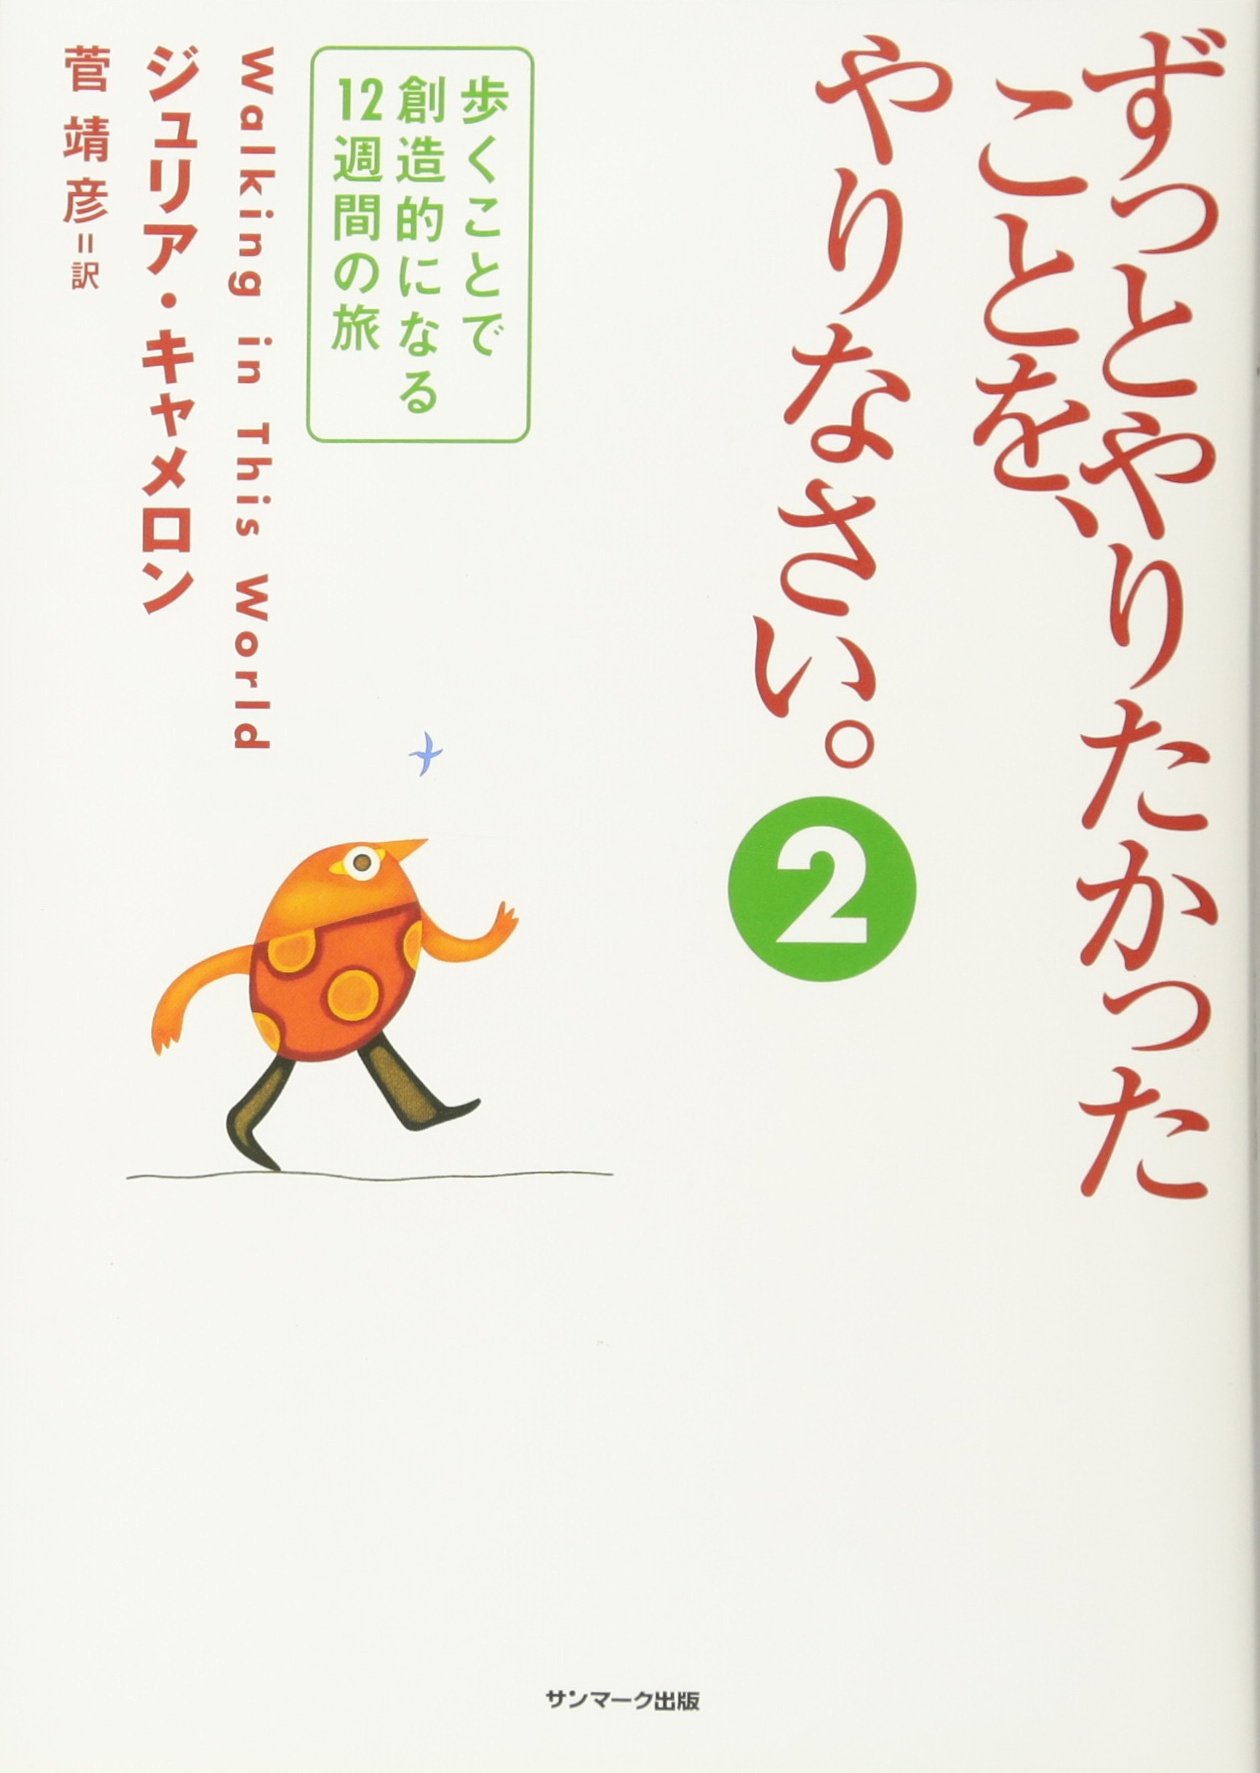 ずっとやりたかった
ことを、
やりなさい。
2
歩くことで
創造的になる
12週間の旅
Walking in This World
ジュリア・キャメロン
菅 靖彦=訳
サンマーク出版